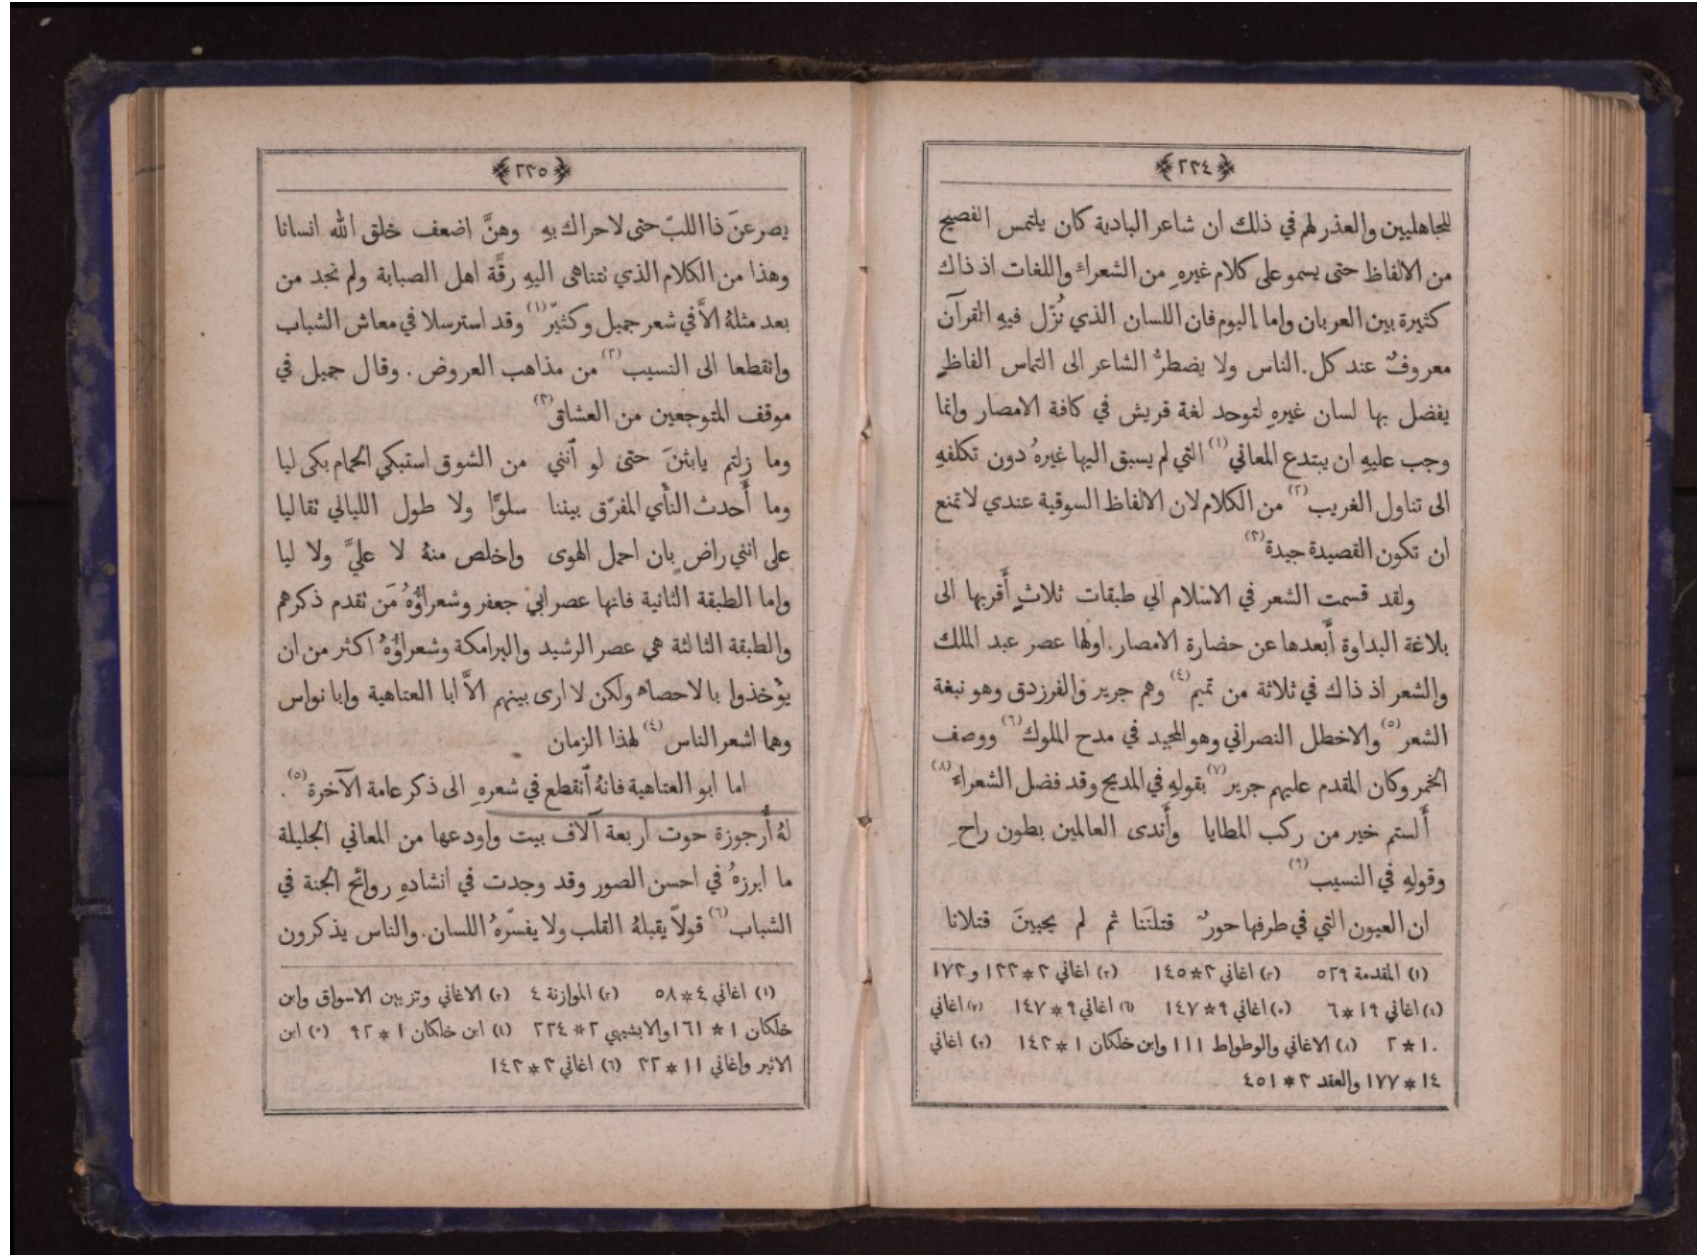 ﴿٢٣٤﴾
للجاهليين والعذر لهم في ذلك ان شاعر البادية كان يلتمس الفصيح
من الالفاظ حتى يسمو على كلام غيرهِ من الشعراء واللغات اذ ذاك
كثيرة بين العربان واما اليوم فان اللسان الذي نُزّل فيهِ القرآن
معروفٌ عند كل الناس ولا يضطرُّ الشاعر الى التماس الفاظٍ
يفضل بها لسان غيرهِ لتوحد لغة قريش في كافة الامصار وانما
وجب عليهِ ان يبتدع المعاني (١) التي لم يسبق اليها غيرهُ دون تكلفهِ
الى تناول الغريب (٢) من الكلام لان الالفاظ السوقية عندي لا تمنع
ان تكون القصيدة جيدة (٣)
ولقد قسمت الشعر في الاسلام الي طبقات ثلاثٍ أَقربها الى
بلاغة البداوة أَبعدها عن حضارة الامصار. اولها عصر عبد الملك
والشعر اذ ذاك في ثلاثة من تميم (٤) وهم جرير والفرزدق وهو نبغة
الشعر (٥) والاخطل النصراني وهو المجيد في مدح الملوك (٦) ووصف
الخمر وكان المقدم عليهم جرير (٧) بقولهِ في المديح وقد فضل الشعراء (٨)
أَلستم خير من ركب المطايا وأَندى العالمين بطون راحِ
وقولهِ في النسيب (٩)
ان العيون التي في طرفها حورٌ قتلنَنا ثم لم يحيينَ قتلانا
(١) المقدمة ٥٢٩ (٢) اغاني ٣*١٤٥ (٣) اغاني ٣*١٢٢ و١٧٣
(٤) اغاني ١٩*٦ (٥) اغاني ٩*١٤٧ (٦) اغاني ٩*١٤٧ (٧) اغاني
١٠*٢ (٨) الاغاني والوطواط ١١١ وابن خلكان ١*١٤٣ (٩) اغاني
١٤*١٧٧ والعقد ٣*٤٥١
﴿٢٣٥﴾
يصرعنَ ذا اللبّ حتى لا حراك بهِ وهنَّ اضعف خلق الله انسانا
وهذا من الكلام الذي تتناهى اليهِ رقَّة اهل الصبابة ولم نجد من
بعد مثلهُ الاَّ في شعر جميل وكثيّر (١) وقد استرسلا في معاش الشباب
وانقطعا الى النسيب (٢) من مذاهب العروض. وقال جميل في
موقف المتوجعين من العشاق (٣)
وما زلتم يابثنَ حتى لو أنني من الشوق استبكي الحمام بكى ليا
وما أَحدث النأي المفرّق بيننا سلوًّا ولا طول الليالي تقاليا
على انني راضٍ بان احمل الهوى واخلص منهُ لا عليَّ ولا ليا
واما الطبقة الثانية فانها عصر ابي جعفر وشعراؤُهُ مَن تقدم ذكرهم
والطبقة الثالثة هي عصر الرشيد والبرامكة وشعراؤُهُ اكثر من ان
يوْخذوا بالاحصاء ولكن لا ارى بينهم الاَّ ابا العتاهية وابا نواس
وهما اشعر الناس (٤) لهذا الزمان
اما ابو العتاهية فانهُ أنقطع في شعرهِ الى ذكر عامة الآخرة (٥).
لهُ أَرجوزة حوت اربعة آلاف بيت واودعها من المعاني الجليلة
ما ابرزهُ في احسن الصور وقد وجدت في انشادهِ روائح الجنة في
الشباب (٦) قولاً يقبلهُ القلب ولا يفسّرهُ اللسان. والناس يذكرون
(١) اغاني ٤*٥٨ (٢) الموازنة ٤ (٣) الاغاني وتزيين الاسواق وابن
خلكان ١*١٦١ والابشيهي ٢*٢٢٤ (٤) ابن خلكان ١*٩٢ (٥) ابن
الاثير واغاني ١١*٢٢ (٦) اغاني ٣*١٤٣